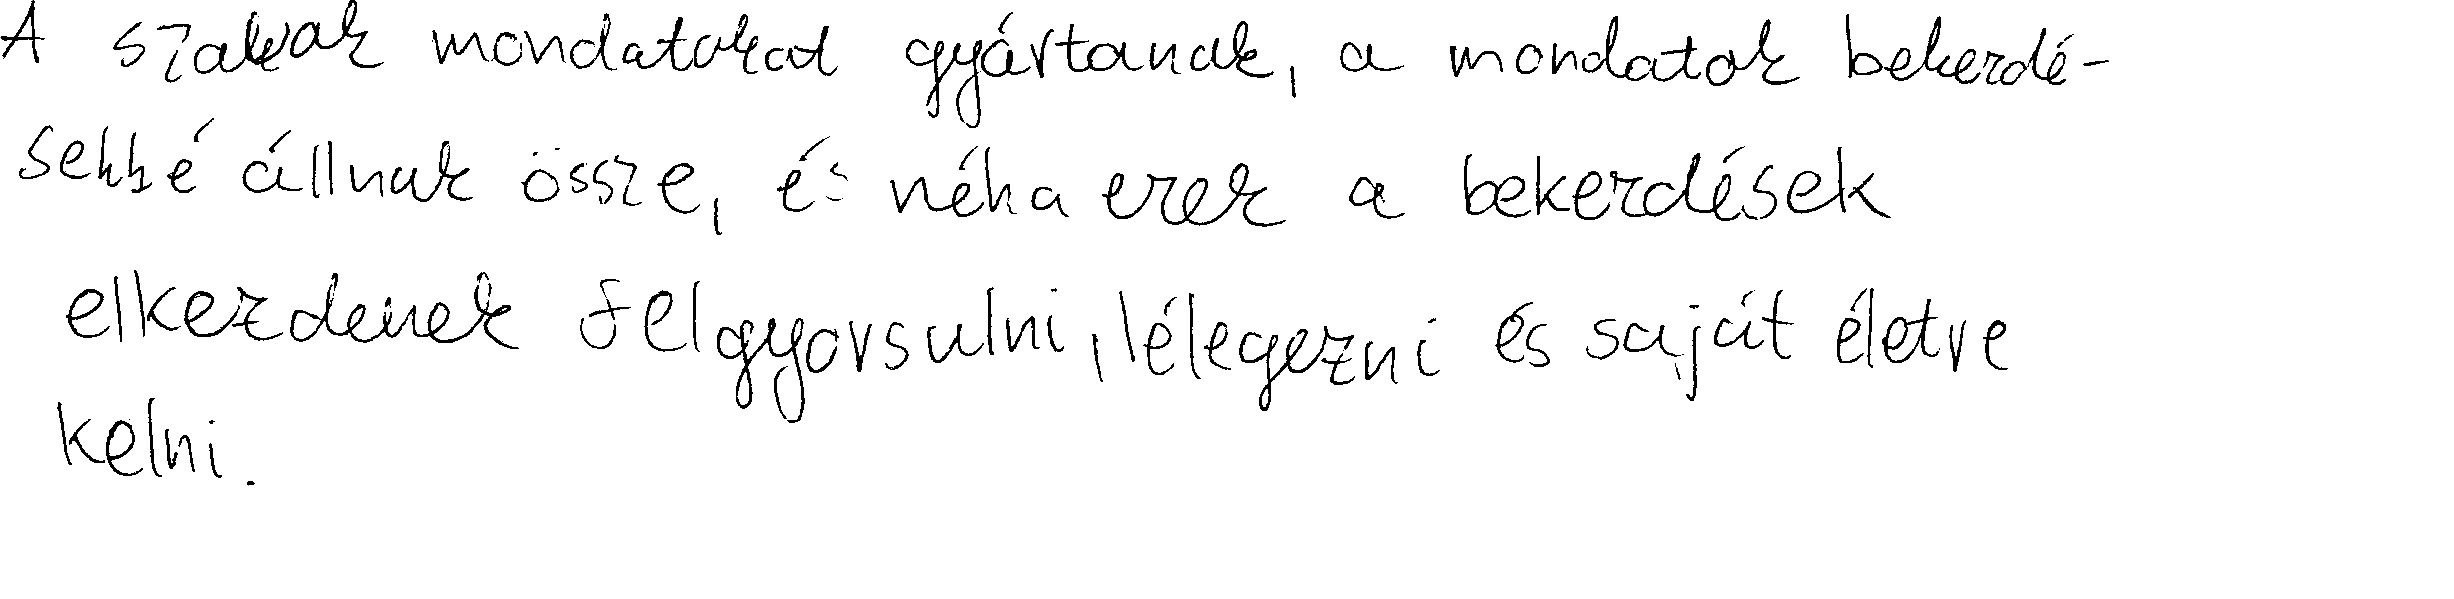 A szavak mondatokat gyártanak, a mondatok bekezdé-
sekké állnak össze, és néha ezek a bekezdések
elkezdenek felgyorsulni, lélegezni és saját életre
kelni.